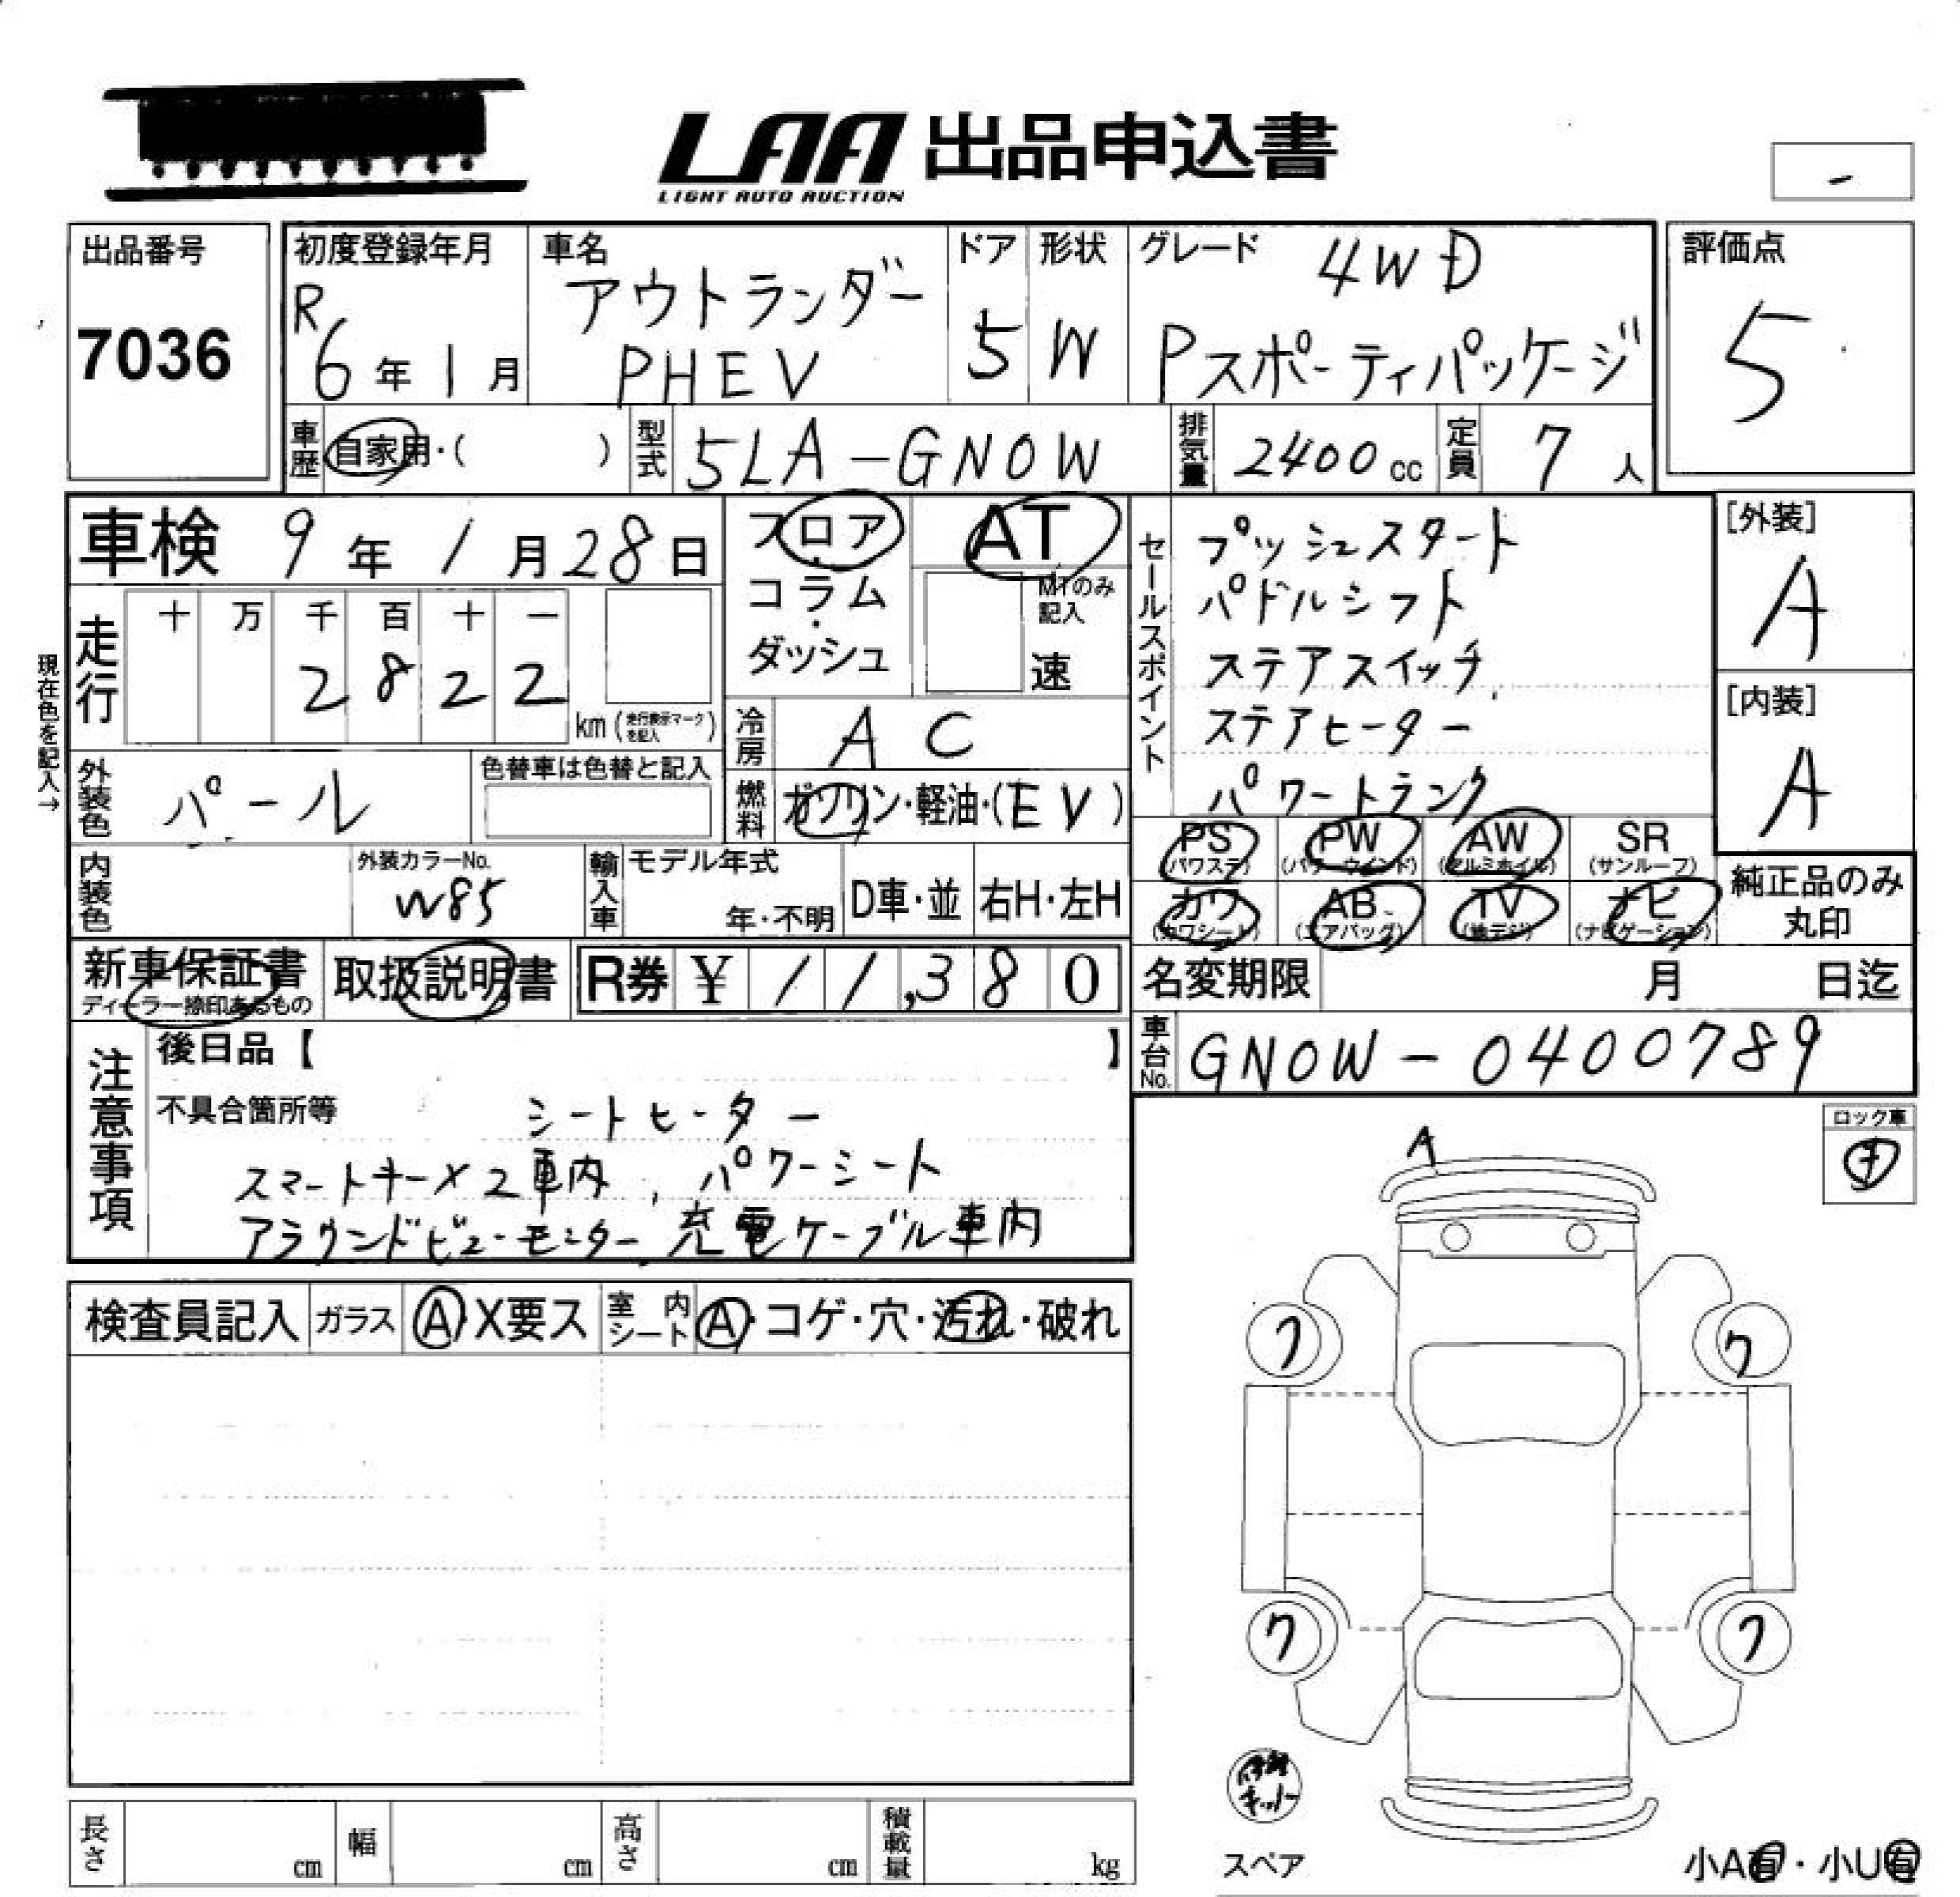 LAA 出品申込書
LIGHT AUTO AUCTION
-
出品番号
7036
初度登録年月
R6年1月
車名
アウトランダー
PHEV
ドア
5
形状
W
グレード
4WD
Pスポーティパッケージ
評価点
5
車歴
自家用・( )
型式
5LA-GN0W
排気量
2400cc
定員
7人
車検 9年1月28日
フロア・
コラム・
ダッシュ
AT
MTのみ
記入
速
セールスポイント
プッシュスタート
パドルシフト
ステアスイッチ
ステアヒーター
パワートランク
[外装]
A
[内装]
A
現在色を記入→
走行
十 万 千 百 十 一
2 8 2 2
km(走行表示マークを記入)
冷房
AC
外装色
パール
色替車は色替と記入
燃料
ガソリン・軽油・(EV)
PS
(パワステ)
PW
(パワーウインド)
AW
(アルミホイル)
SR
(サンルーフ)
カワ
(カワシート)
AB
(エアバッグ)
TV
(地デジ)
ナビ
(ナビゲーション)
純正品のみ
丸印
内装色
外装カラーNo.
W85
輸入車
モデル年式
年・不明
D車・並
右H・左H
新車保証書
ディーラー捺印あるもの
取扱説明書
R券 ¥11,380
名変期限 月 日迄
車台No.
GN0W-0400789
注意事項
後日品【 】
不具合箇所等
シートヒーター
スマートキー×2車内、パワーシート
アラウンドビューモニター、充電ケーブル車内
ロック車
A
検査員記入
ガラス
A X要ス
室内シート
A・コゲ・穴・汚れ・破れ
ワ
ワ
ワ
ワ
キット
スペア
小A有・小U有
長さ cm
幅 cm
高さ cm
積載量 kg